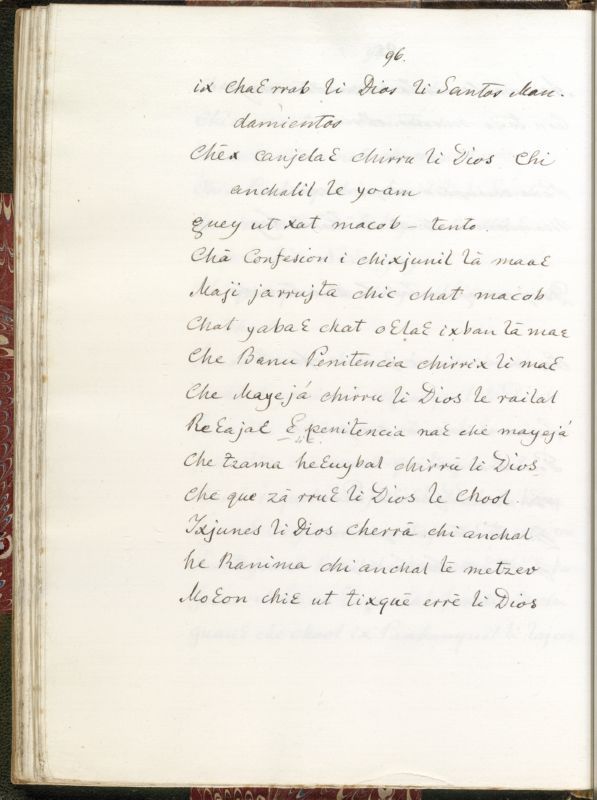 96.
ix chaƐrrab li Dios li Santos Man-
damientos
Chēx canjelaƐ chirru li Dios Chi
anchalil le yoam
quey ut xat macob - tento.
Chā Confesion i chixjunil lā maaƐ
Maji jarrujta chic chat macob
Chat yabaƐ chat oƐlaƐ ixban lā maƐ
Che Banu Penitencia chirrix li maƐ
Che Mayejá chirru li Dios le railal
ReƐajaƐ Ɛ penitencia naƐ che mayejá
Che tzama heƐuybal chirrū li Dios
Che que zā rruƐ li Dios le Chool.
Ixjunes li Dios cherrā chi anchal
he Ranima chi anchal lē metzev
MoƐon chiƐ ut tixquē errē li Dios